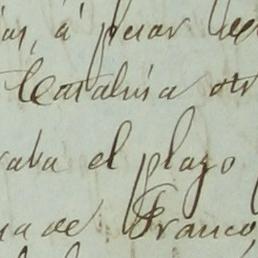 á pesar
Catalina otr
raba el plazo
na de Franco,